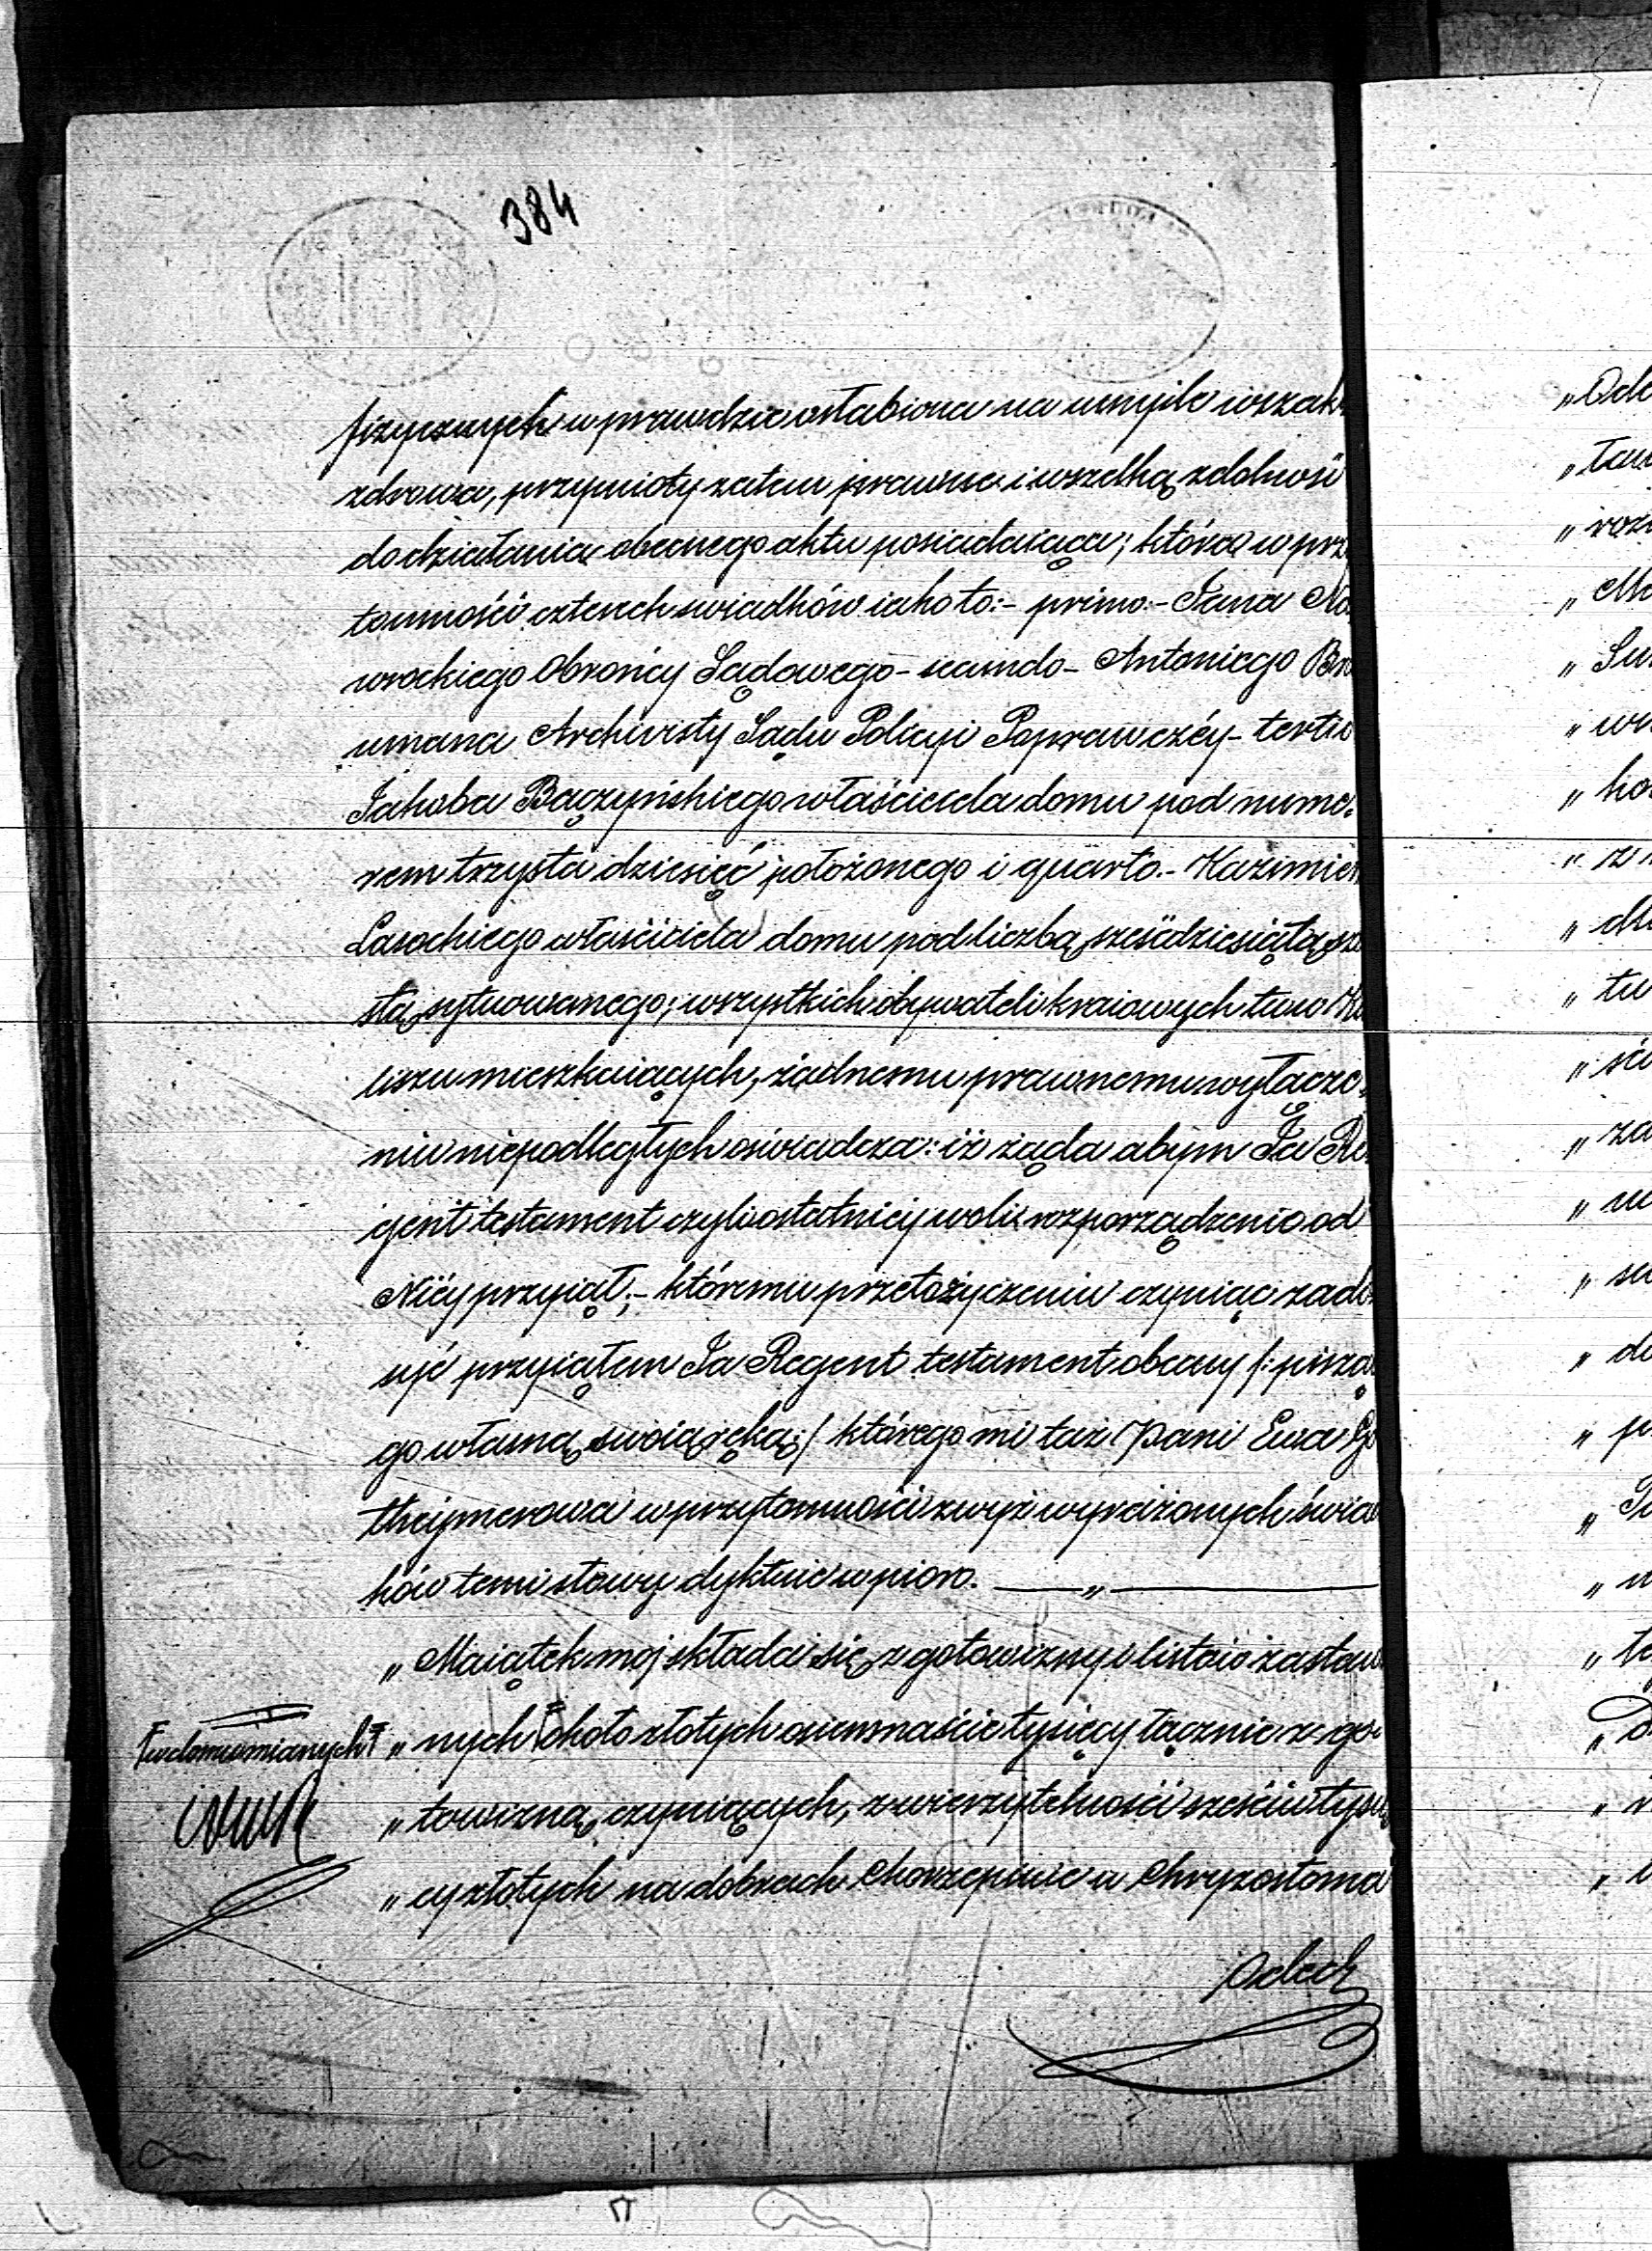 384
fizycznych wprawdzie osłabiona na umyśle wszak
zdrowa, przymioty zatem prawne i wszelką zdolność
do działania obecnego aktu posiadaiąca; która w prz
tomności czterech swiadków iako to:- primo:- Jana Na
wrockiego Obrońcy Sądowego - secundo - Antoniego Br
umana Archivisty Sądu Policyi Poprawczéy - tertio
Jakuba Bączyńskiego właściciela domu pod nume-
rem trzysta dziesięć położonego i quarto.- Kazimier
Lasockiego właściciela domu pod liczbą sześćdziesiątą sz
stą sytuowanego; wszystkich obywateli kraiowych tu w Ka
liszu mieszkaiących, żadnemu prawnemu wyłącze-
niu niepodległych oświadcza: iż żąda abym Ja Re
gent testament czyli ostatniey woli rozporządzenie od
Niéy przyiął;- któremu przeto życzeniu czyniąc zado
syć przyiąłem Ja Regent testament obecny /: pisząc
go własną swoią ręką :/ którego mi taż Pani Ewa Go
theymerowa w przytomności zwyż wyrażonych świad
ków temi słowy dyktuie w pioro. — „ —
„ Maiątek moj składa się z gotowizny i listów zastaw
„ nych około złotych osiemnaście tysięcy łącznie z go-
wdomumianych
„ towizną czyniących, z wierzytelności sześciu tysię
„ cy złotych na dobrach Chorzepinie u Chryzostoma
„ Ode
„ roz
„ Su
„ ho
„ tu
„ za